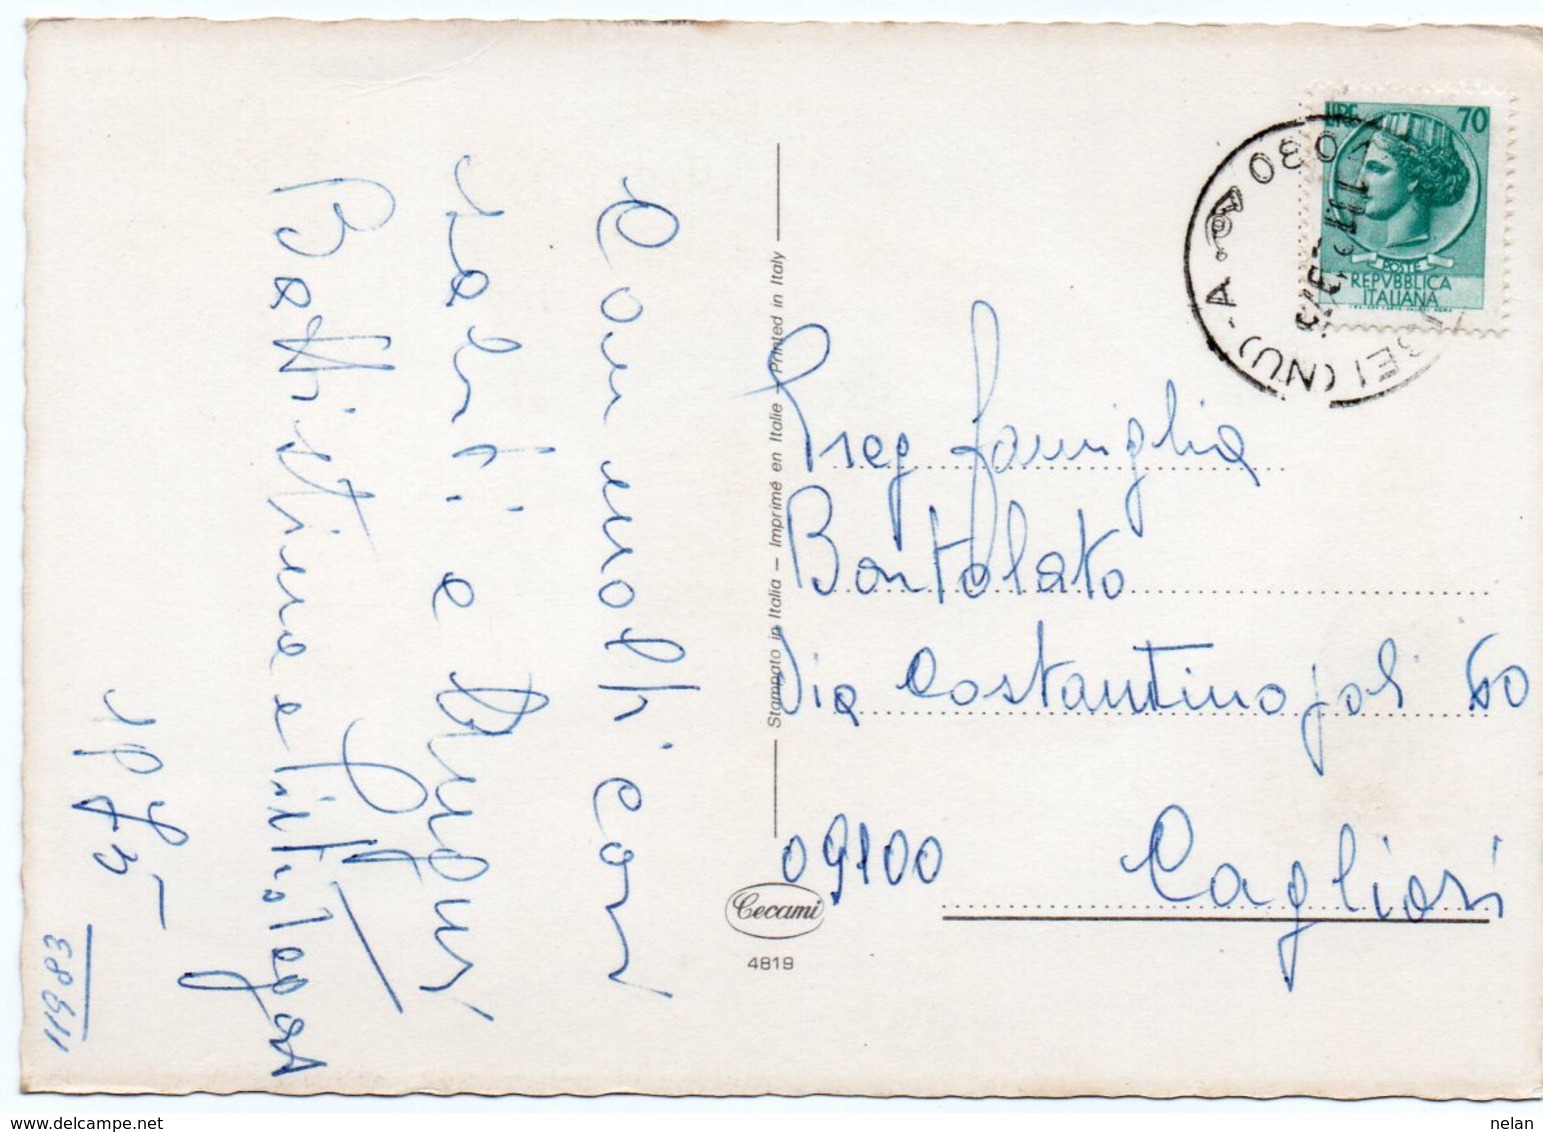 Con molti cari
saluti e Auguri
Battistina e
1975
119 83
Stampato in Italia – Imprimé en Italie – Printed in Italy
Cecami
4819
LIRE 70
POSTE
REPVBBLICA
ITALIANA
(NU) - A
Preg famiglia
Bortolato
Via Costantinopoli 60
09100 Cagliari
www.delcampe.net
nelan